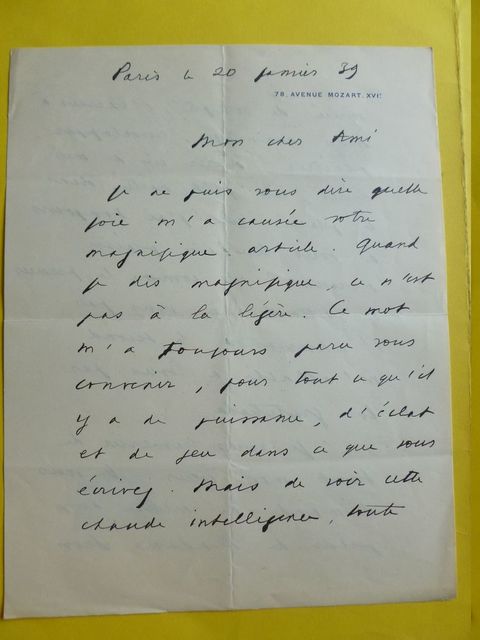 Paris le 20 janvier 39
78, AVENUE MOZART. XVIᵉ
Mon cher Ami
Je ne puis vous dire quelle
joie m'a causée votre
magnifique article. Quand
je dis magnifique, ce n'est
pas à la légère. Ce mot
m'a toujours paru vous
convenir, pour tout ce qu'il
y a de puissance, d'éclat
et de feu dans ce que vous
écrivez. Mais de voir cette
chaude intelligence, toute